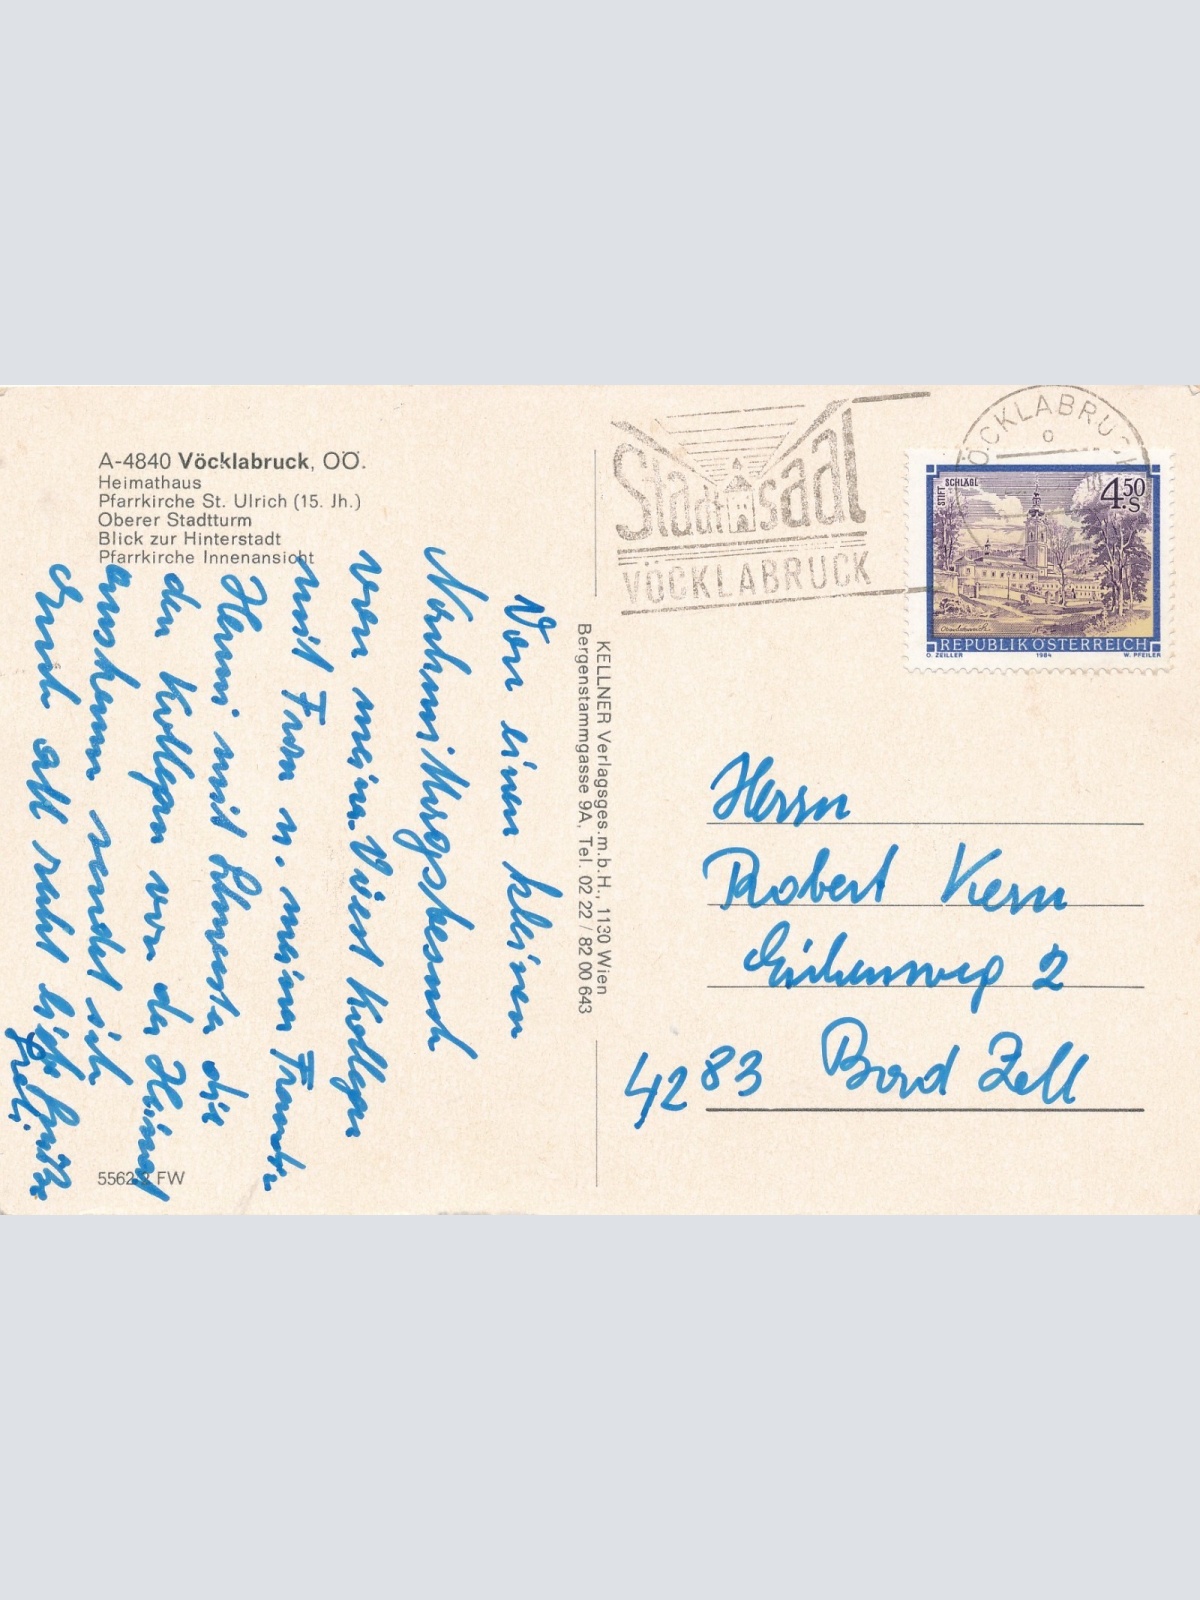 A-4840 Vöcklabruck, OÖ.
Heimathaus
Pfarrkirche St. Ulrich (15. Jh.)
Oberer Stadtturm
Blick zur Hinterstadt
Pfarrkirche Innenansicht
Von einen kleinen
Nachmittagsbesuch
von mein. Dienst Kollegen
mit Frau u. meiner Freundin
Hermi mit
den Kollegen von der Heimat
sendet sich
Euch all recht
5562 FW
KELLNER Verlagsges.m.b.H., 1130 Wien
Bergenstammgasse 9A, Tel. 02 22 / 82 00 643
Stadtsaal
VÖCKLABRUCK
VÖCKLABRUCK
STIFT SCHLÄGL
4.50 S
REPUBLIK ÖSTERREICH
O. ZEILLER 1984 W. PFEILER
Herrn
Robert Kern
Eichenweg 2
4283 Bad Zell